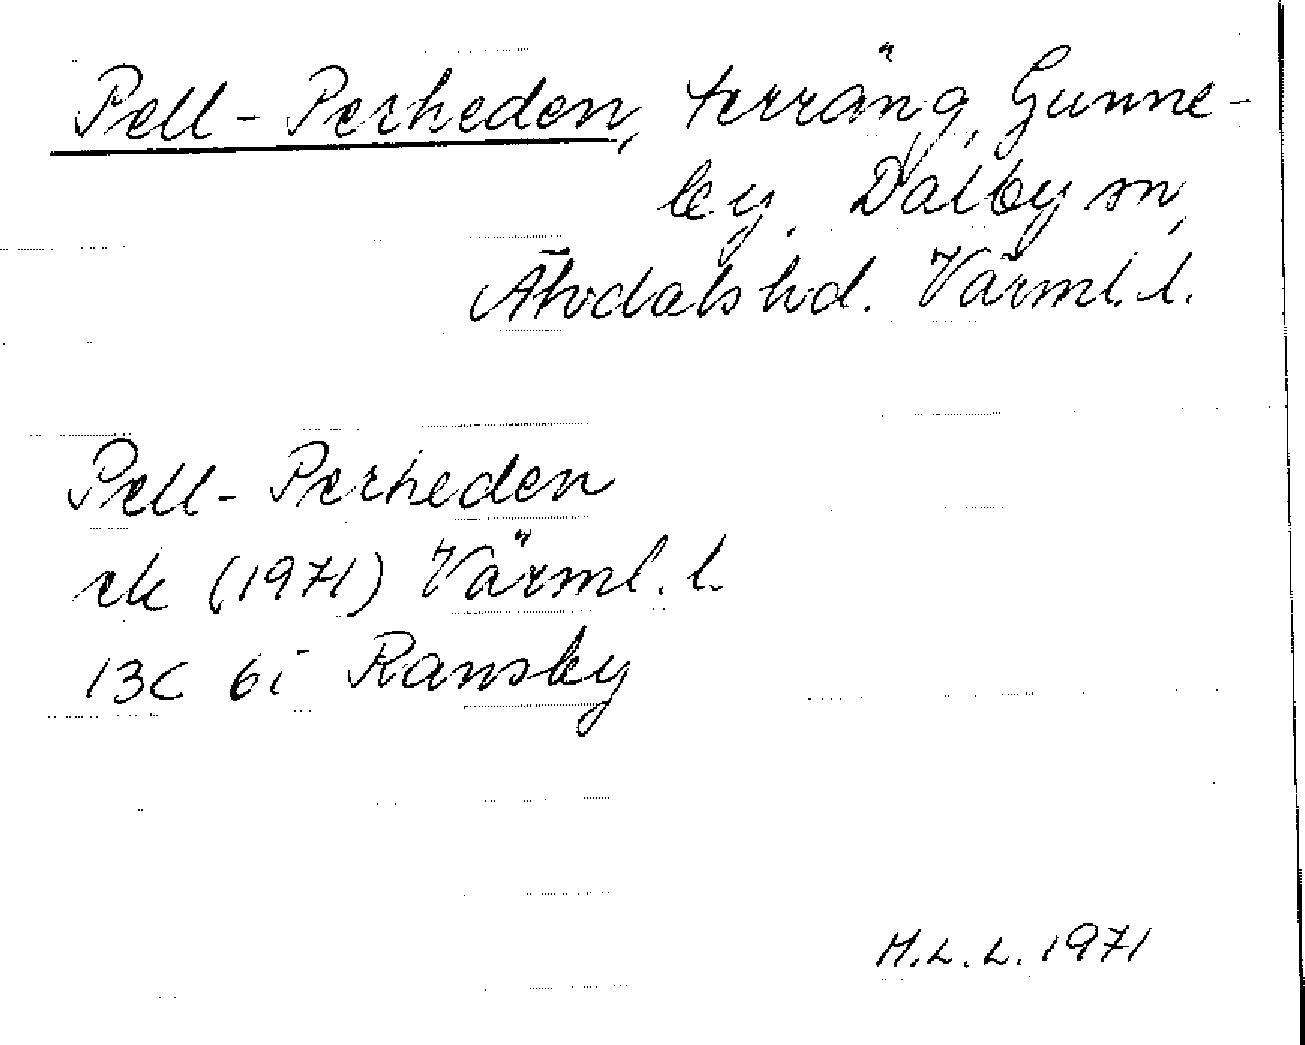 Pell-Perheden, terräng, Gunne-
by, Dalby sn,
Älvdals hd. Värml. l.
Pell-Perheden
ek (1971) Värml. l.
13C 6i Ransby
M.L.L. 1971